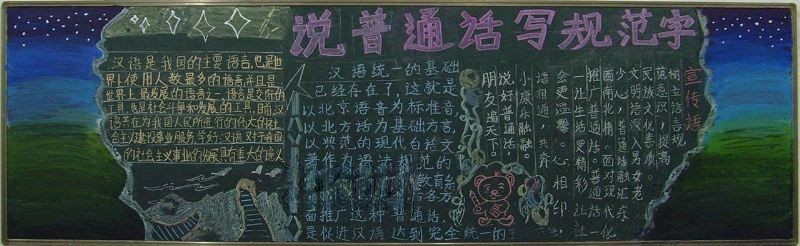 说普通话写规范字
汉语是我国的主要语言,也是世
界上使用人数最多的语言并且是
世界上最发展的语言之一,语言是交际的
工具,也是社会斗争和发展的工具,目前,汉
语正在为我国人民所进行的伟大的社
会主义建设事业服务,学好汉语,对于我国
的社会主义事业的发展具有重大的意义
汉语统一的基础
已经存在了,这就是
以北京语音为标准音,
以北方话为基础方言,
以典范的现代白话文
著作为语法规范的
教育系
面推广这种普通话,
是促进汉语达到完全统一的主
宣传语
树立语言规
范意识,提高
民族文化素质。
文明语深入男女老
少心,普通话融汇东
西南北情。面对现代化
推广普通话。普通话一
让生活更精彩,让社
会更温馨。心相印,
语相通,共奔
小康乐融融。
说好普通话,
朋友遍天下。